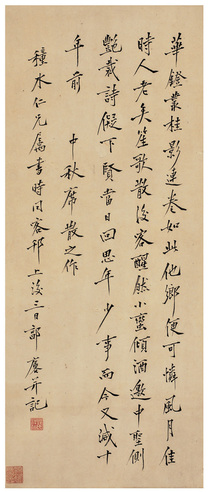 華鐙叢桂影連卷如此他鄉便可憐風月佳
時人老矣笙歌散後客醒然小蠻傾酒邀中聖側
艷裁詩儗下賢當日回思年少事而今又減十
年前 中秋席散之作
穜水仁兄属書時同客邗上後三日郭慶并記